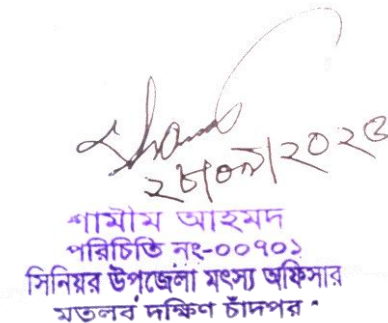 ২৮/০৭/২০২৫
শামীম আহমদ
পরিচিতি নং-০০৭০১
সিনিয়র উপজেলা মৎস্য অফিসার
মতলব দক্ষিণ চাঁদপুর